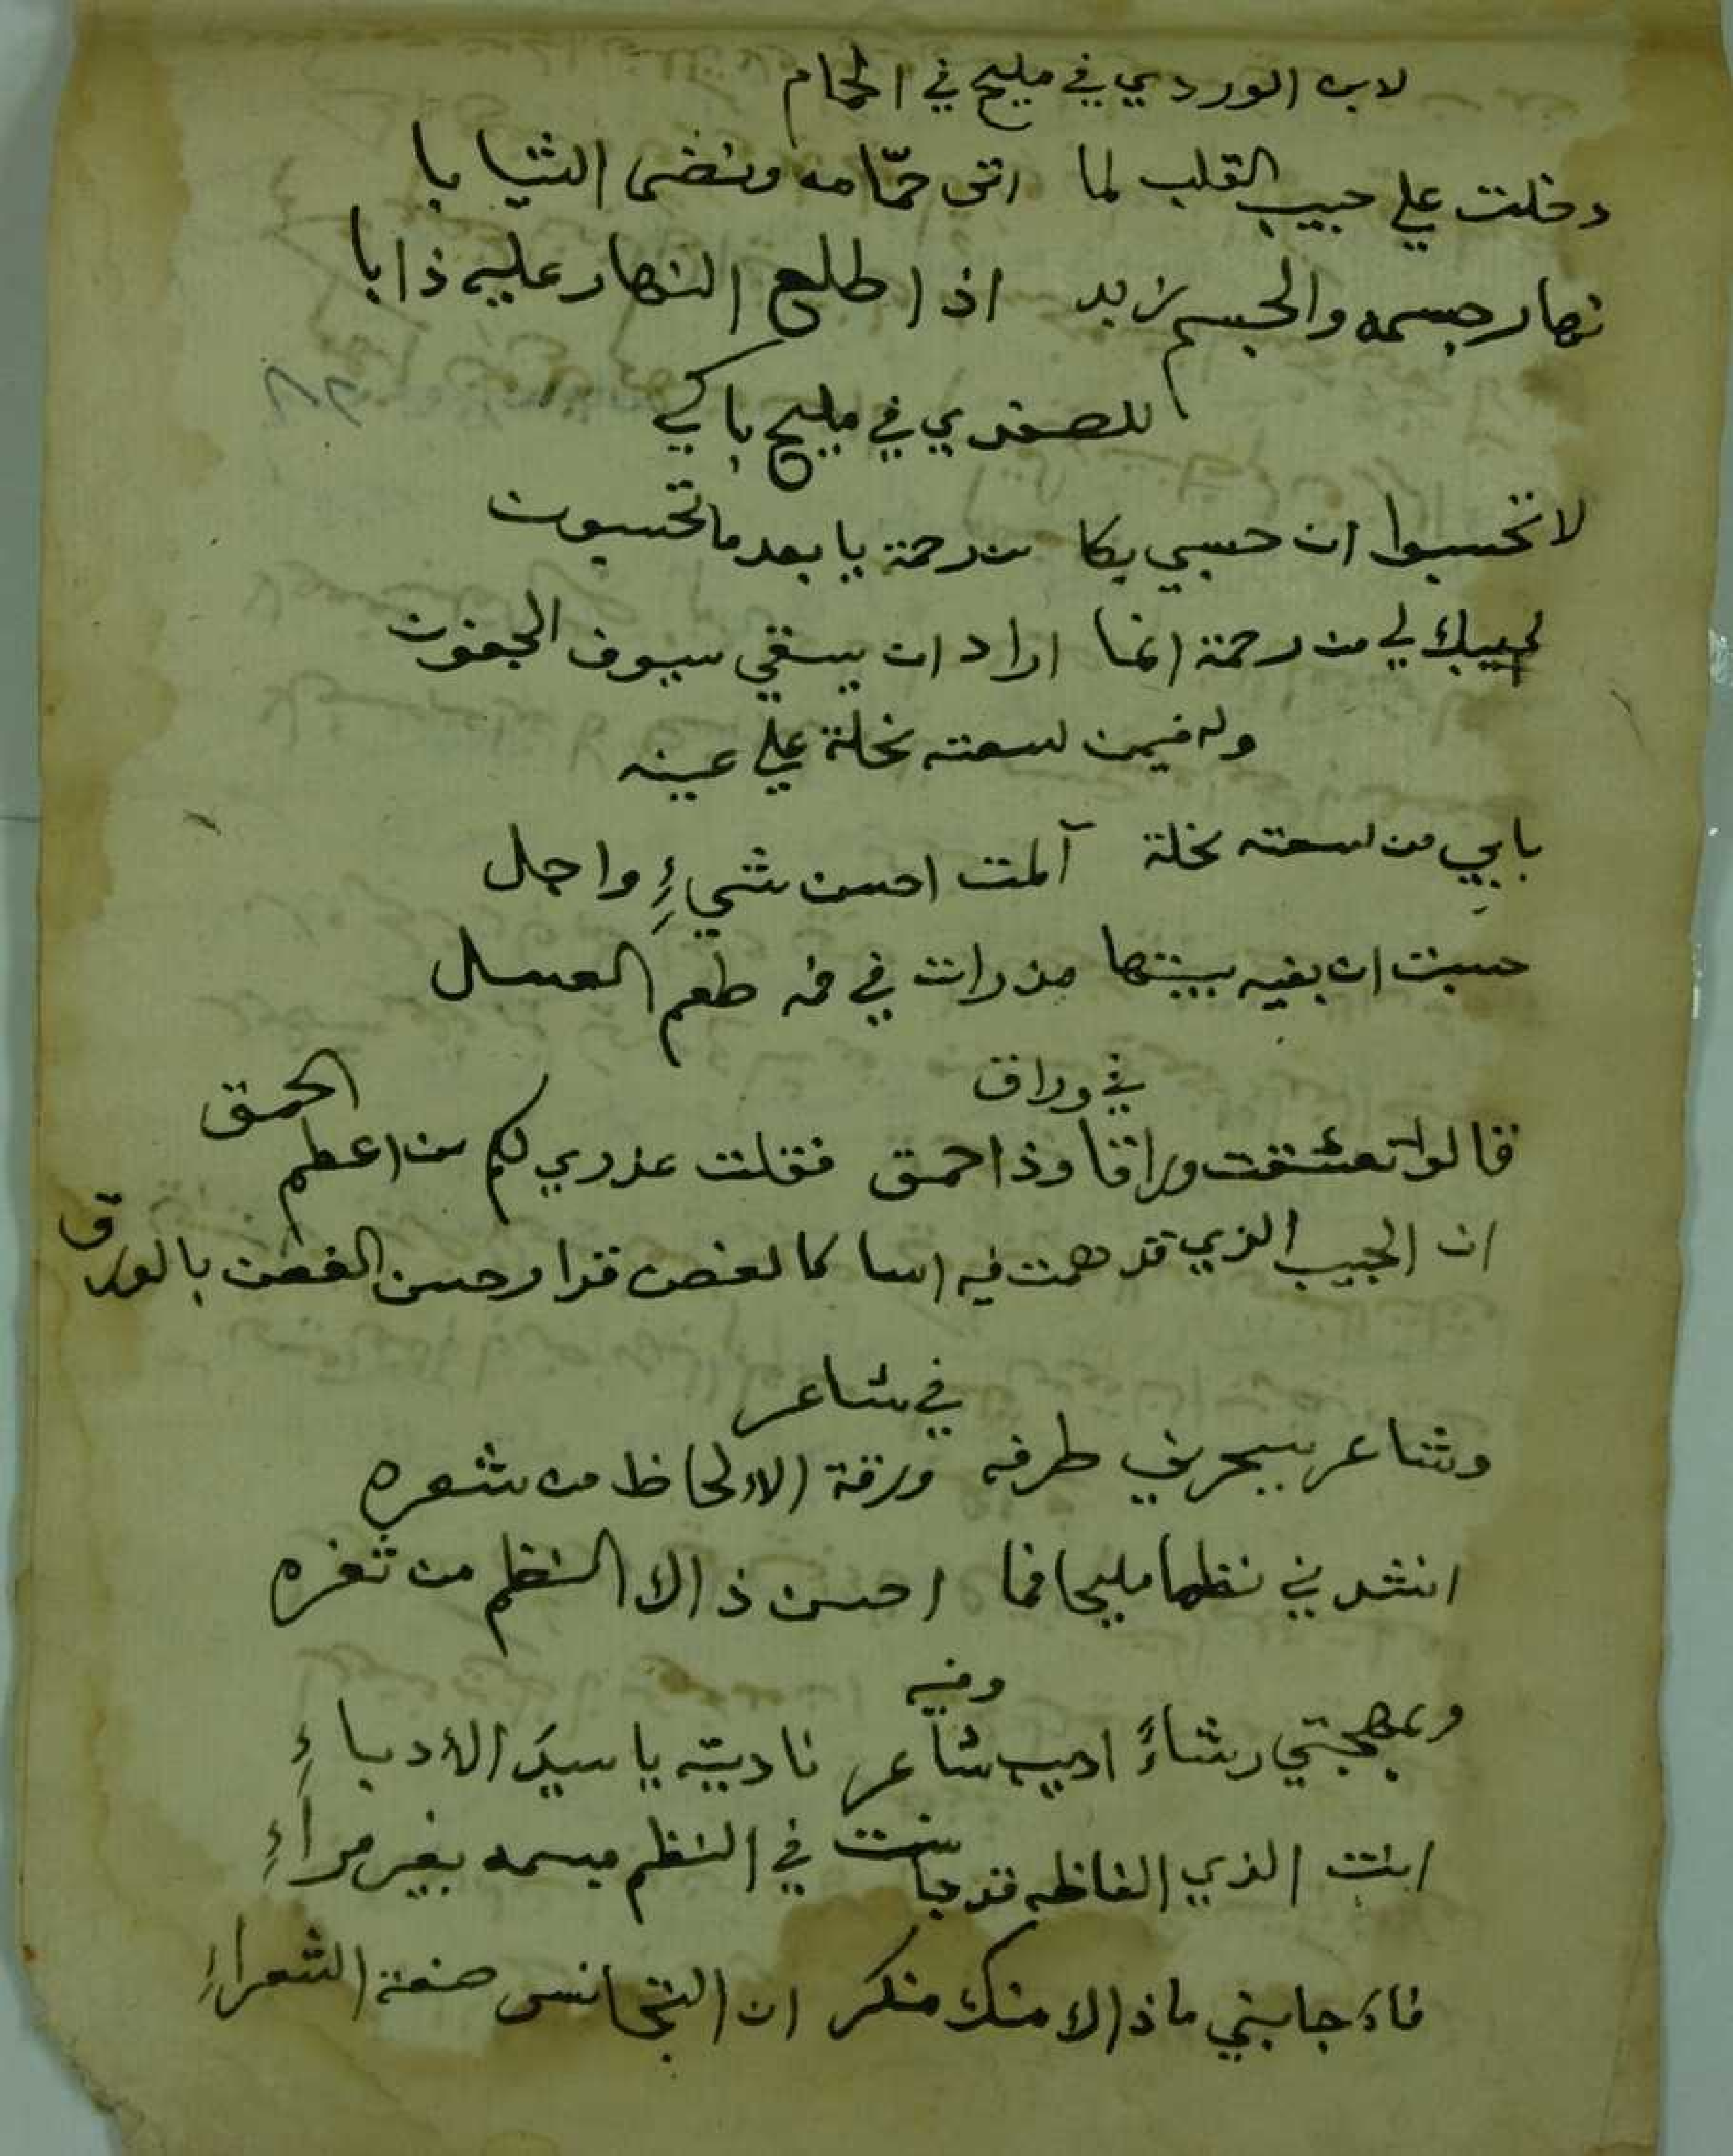 لابن الوردي في مليح في الحمام
دخلت علي حبيب القلب لما اتى حمّامه ونضى الثيابا
نهار جسمه والجسم زبد اذا طلع النهار عليه ذابا
للصفدي في مليح باكي
لا تحسبوا ان حبيبي بكا من رحمة يا بعد ما تحسبون
لم يبك لي من رحمة انما اراد ان يسقي سيوف الجفون
وله فيمن لسعته نحلة علي عينه
بابي من لسعته نحلة آلمت احسن شيءٍ واجل
حسبت ان بفيه بيتها مذ رات في فمه طعم العسل
في وراق
قالوا تعشقت وراقا وذا حمق فقلت عذري لكم من اعظم الحمق
ان الحبيب الذي قد همت فيه اسا كالغصن قدا وحسن الغصن بالورق
في شاعر
وشاعر يسحرني طرفه ورقة الالحاظ من شعره
انشدني نظما مليحا فما احسن ذاك النظم من ثغره
وفيه
وبمهجتي رشاءً اديب شاعر ناديته يا سيد الأدباءِ
انت الذي الفاظه قد جانست في النظم مبسمه بغير مراءِ
فاءجابني ماذاك منك منكر ان التجانس صنعة الشعراءِ